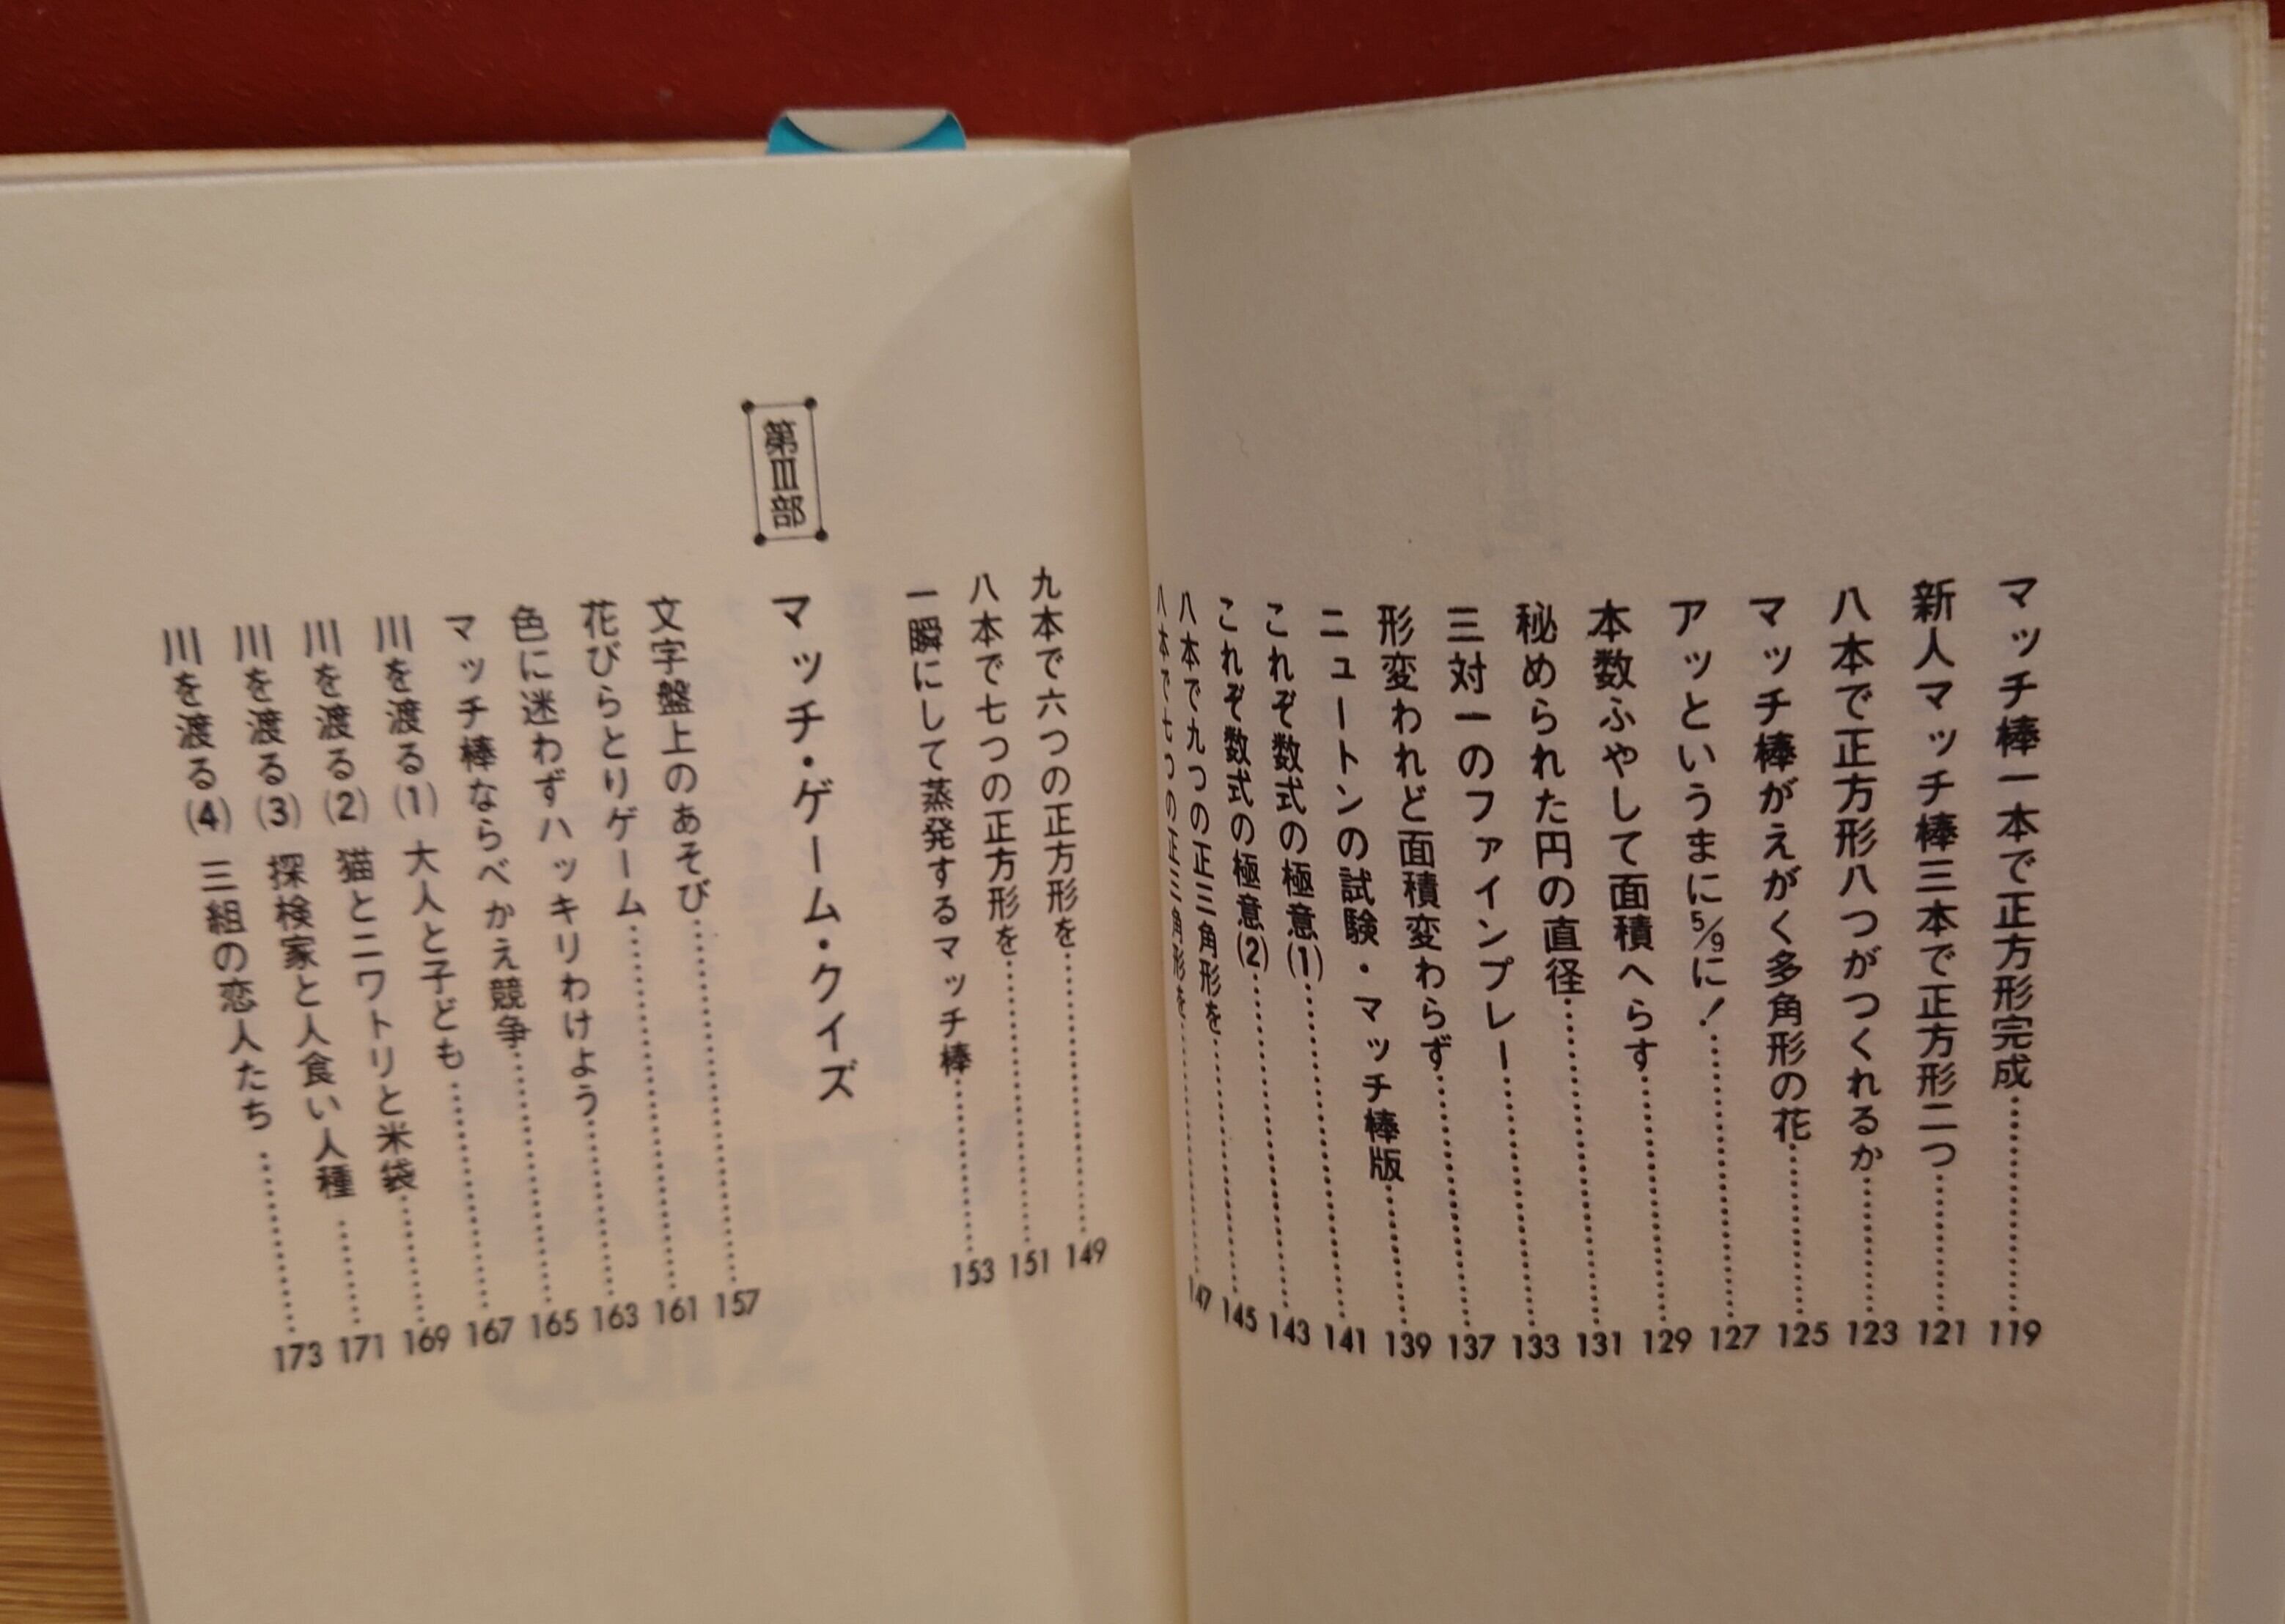 マッチ棒一本で正方形完成……119
新人マッチ棒三本で正方形二つ……121
八本で正方形八つがつくれるか……123
マッチ棒がえがく多角形の花……125
アッというまに5/9に！……127
本数ふやして面積へらす……129
秘められた円の直径……131
三対一のファインプレー……133
形変われど面積変わらず……137
ニュートンの試験・マッチ棒版……139
これぞ数式の極意(1)……141
これぞ数式の極意(2)……143
八本で九つの正三角形を……145
八本で七つの正三角形を……147
九本で六つの正方形を……149
八本で七つの正方形を……151
一瞬にして蒸発するマッチ棒……153
第Ⅲ部 マッチ・ゲーム・クイズ
文字盤上のあそび……157
花びらとりゲーム……161
色に迷わずハッキリわけよう……163
マッチ棒ならべかえ競争……165
川を渡る(1) 大人と子ども……167
川を渡る(2) 猫とニワトリと米袋……169
川を渡る(3) 探検家と人食い人種……171
川を渡る(4) 三組の恋人たち……173